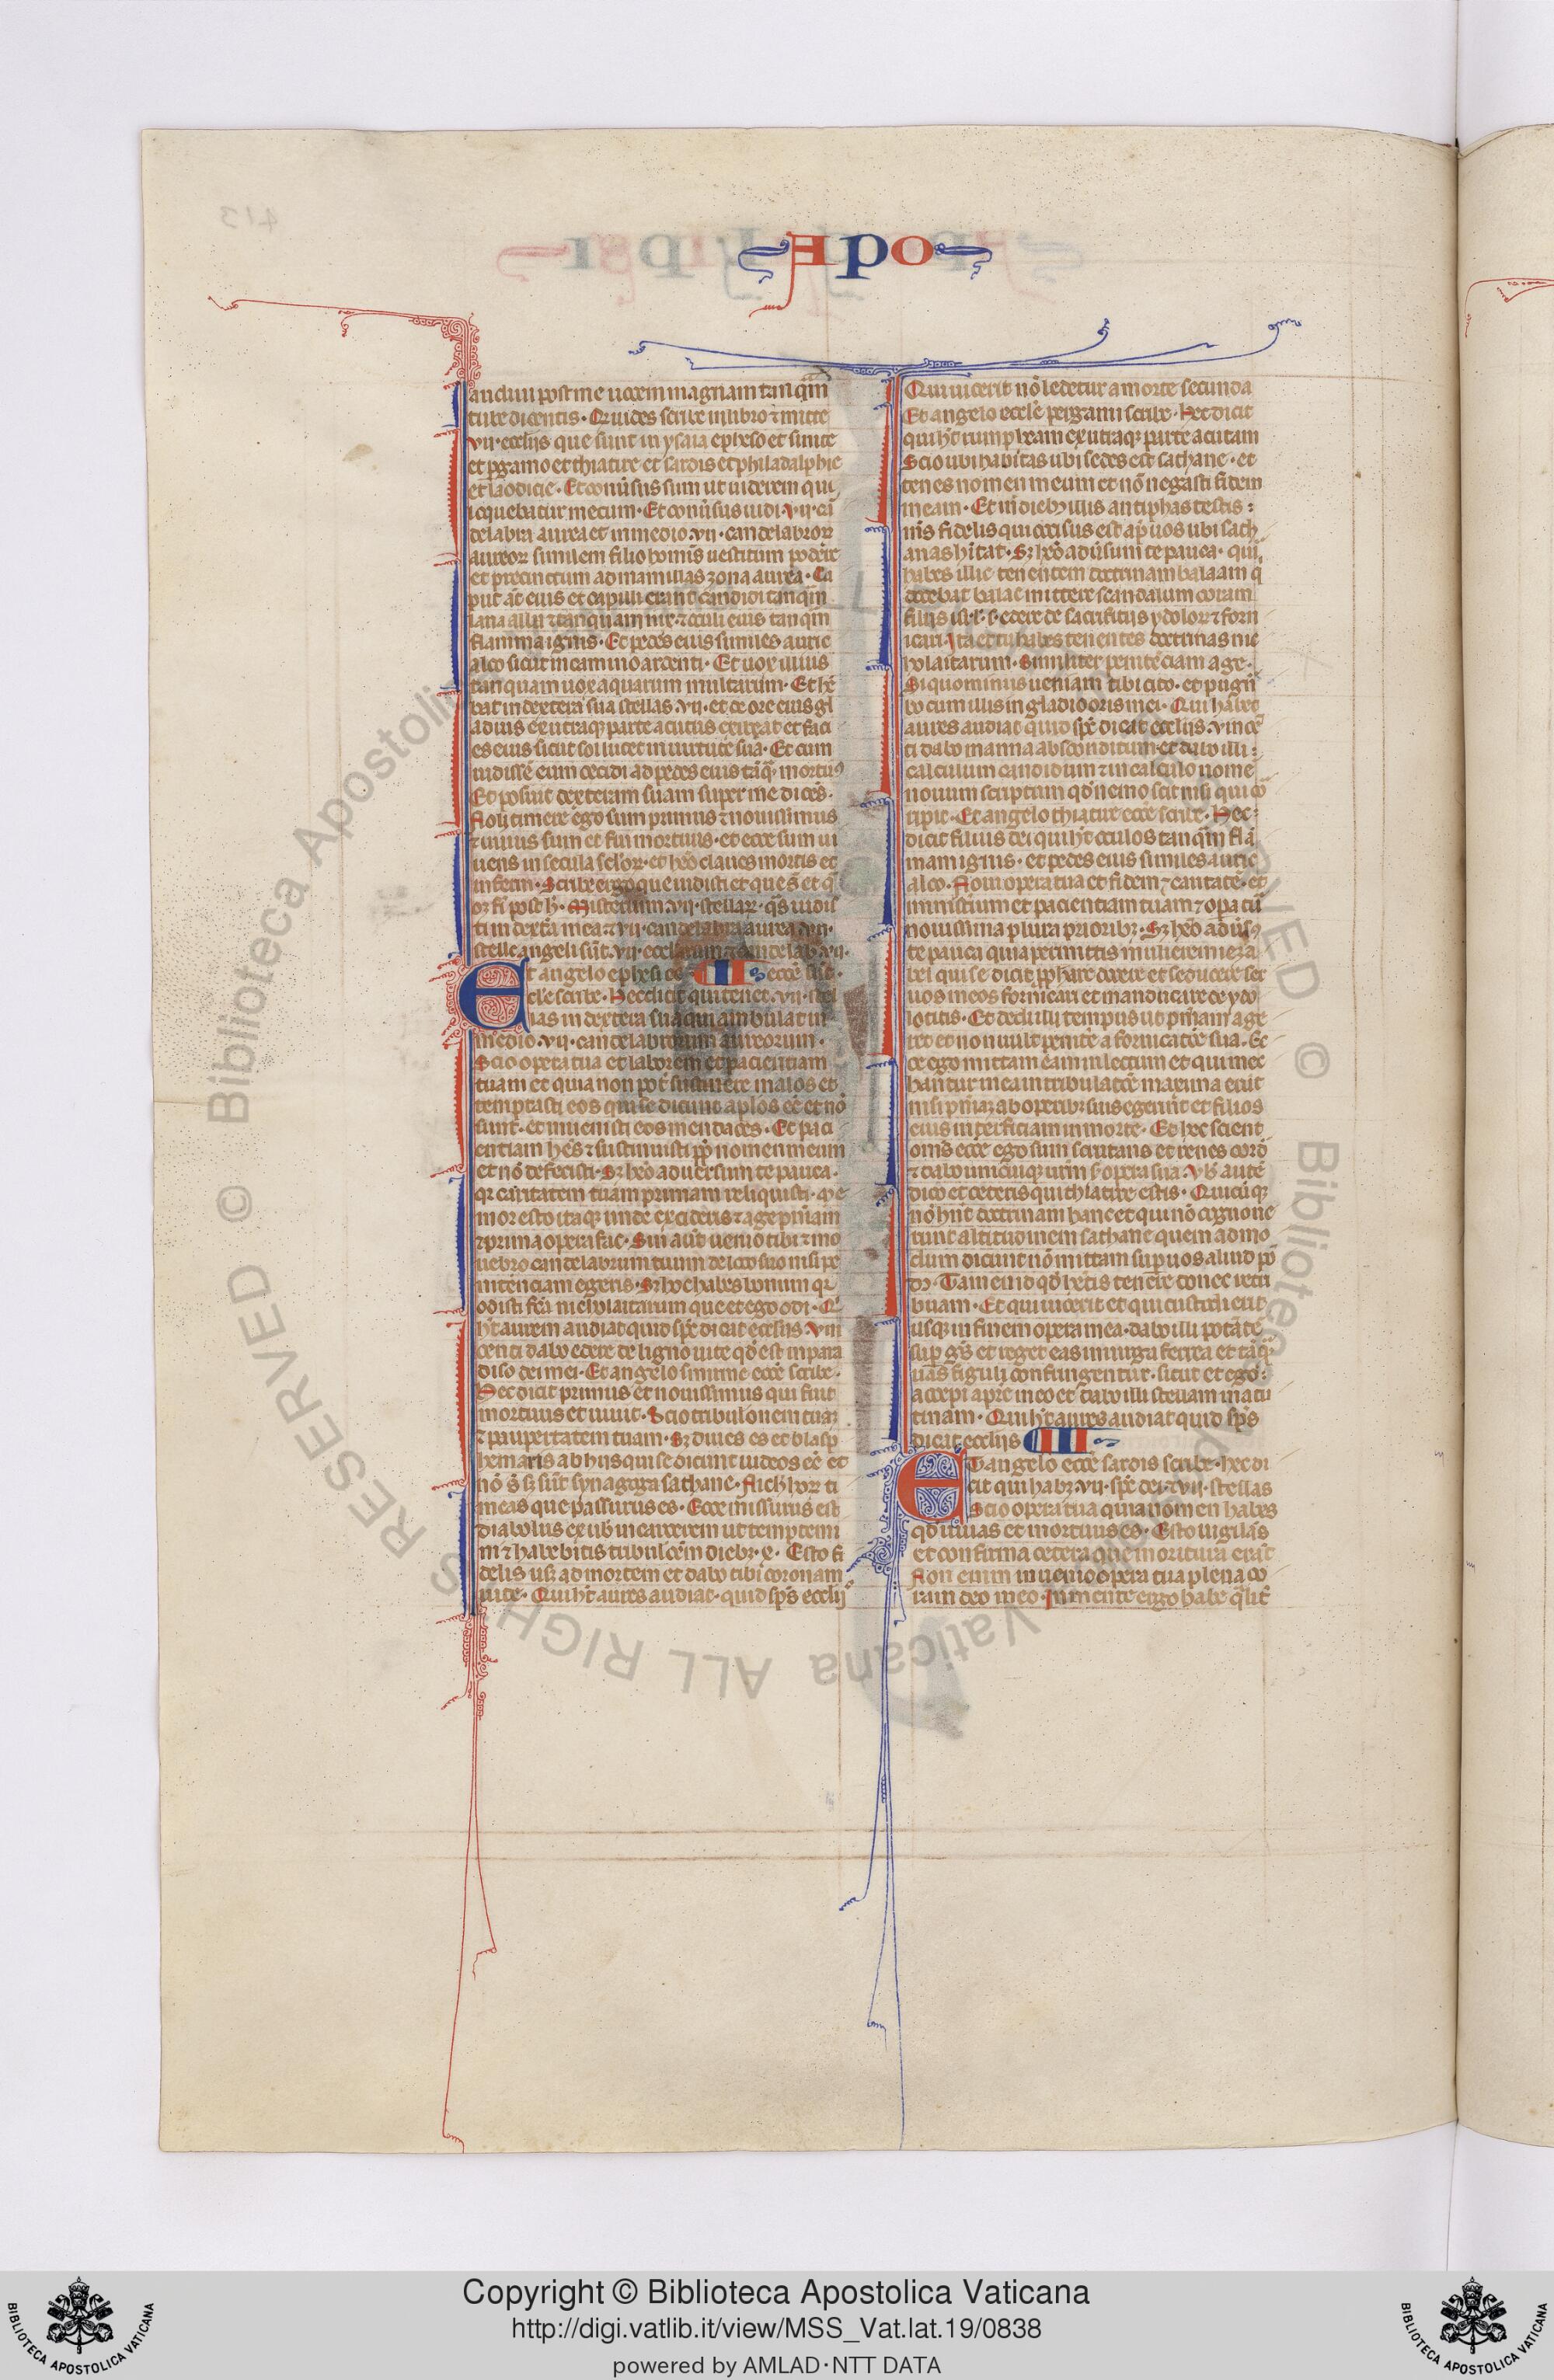 Apo
audiui post me uocem magnam tanq̄m
tube dicentis. Q̄ uides scribe in libro ⁊ mitte
vii. eccl̄iis que sunt in ysaia epheso et smirne
et p̱gamo et thiatire et sardis et philadalphie
et laodicie. Et conũsus sum ut uiderem qui
loquebatur mecum. Et conũsus uidi .vii. cã
delabra aurea et in medio .vii. candelabror̄
aureor̄ similem filio hominis uestitum podere
et precinctum ad mamillas zona aurea. Ca
put aũt eius et capilli erant candidi tanq̄m
lana alba ⁊ tanquam nix. ⁊ oculi eius tanq̄m
flamma ignis. Et pedes eius similes auric
alco sicut in camino ardenti. Et uox illius
tanquam uox aquarum multarum. Et hē
bat in dextera sua stellas .vii. et de ore eius gl
adius ex utraq; parte acutus exiebat et faci
es eius sicut sol lucet in uirtute sua. Et cum
uidissẽ eum cecidi ad pedes eius tãq̄ mortuꝰ
Et posuit dexteram suam super me dicẽs.
Noli timere ego sum primus ⁊ nouissimus
⁊ uiuus sum et fui mortuus. et ecce sum ui
uens in secula sclor̄. et hẽo claues mortis et
inferni. Scribe ergo que uidisti et que sũt et q̄
oꝫ fi post h̄. Misterium .vii. stellar̄. q̄s uidis
ti in dextẽa mea ⁊ vii. candelabra aurea. vii.
stelle angeli sũt .vii. eccl̄iarum ⁊ candelab. vii.
Et angelo ephesi ec II eccẽ sũt.
cl̄e scribe. Hec dicit qui tenet .vii. stel
las in dextera sua qui ambulat in
medio .vii. candelabrorum aureorum.
Scio opera tua et laborem et pacientiam
tuam et quia non pot̄ sustinere malos et
temptasti eos qui se dicunt ap̄los eẽ et nõ
sunt. et inuenisti eos mendaces. Et paci
entiam hẽs ⁊ sustinuisti p̱p̱ nomen meum
et nõ defecisti. Sꝫ hẽo aduersum te pauca.
qr̄ caritatem tuam primam reliquisti. Me
mor esto itaq; unde excideris ⁊ age pñiam
⁊ prima opera fac. Sin aũt uenio tibi ⁊ mo
uebo candelabrum tuum de loco suo nisi pe
nitenciam egeris. Sꝫ hoc habes bonum qr̄
odisti fca nicholaitarum que et ego odi. Q̄
h̄t aurem audiat quid sp̄c dicat eccl̄iis. Vin
centi dabo edere de ligno uite qd̄ est in para
diso dei mei. Et angelo smirne eccẽ scribe.
Hec dicit primus et nouissimus qui fuit
mortuus et uiuit. Scio tribulonem tuaꝫ
⁊ paupertatem tuam. Sꝫ diues es et blasp
hemaris ab hiis qui se dicunt iudeos eẽ et
nõ s̄ sꝫ sũt synagoga sathane. Nich̄ hor̄ ti
meas que passurus es. Ecce missurus est
diabolus ex ub̄ in carcerem ut temptemi
ni ⁊ habebitis tribulc̄em diebꝫ .x. Esto fi
delis usꝫ ad mortem et dabo tibi coronam
uite. Qui h̄t aures audiat. quid sp̄s eccl̄ii
Qui uicerit nõ ledetur a morte secunda
Et angelo eccl̄e pergami scribe. Hec dicit
qui h̄t rumpheam ex utraq; parte acutam
Scio ubi habitas ubi sedes est sathane. et
tenes nomen meum et nõ negasti fidem
meam. Et in dieb; illis antiphas testis
m̄s fidelis qui occisus est ap̄ uos ubi sath
anas hītat. Sꝫ hẽo adũsum te pauca. quı̄
habes illic tenentem doctrinam balaam q̄
docebat balac mittere scandalum coram
filiis isr̄l. edere de sacrificiis ydolor̄ ⁊ forn
icari. Ita et tu habes tenentes doctrinas nic
holaitarum. Similiter penitẽciam age.
Si quominus ueniam tibi cito. et pugna
bo cum illis in gladio oris mei. Qui habet
aures audiat quid sp̄c dicat eccl̄iis. Vincẽ
ti dabo manna absconditum. et dabo illi
calculum candidum ⁊ in calculo nome
nouum scriptum qd̄ nemo scit nisi qui ac
cipit. Et angelo thiatire eccẽ scribe. Hec
dicit filius dei qui h̄t oculos tanq̄m flã
mam ignis. et pedes eius similes auric
alco. Noui opera tua et fidem ⁊ caritatẽ. et
ministerium et pacientiam tuam ⁊ opa tũ
nouissima plura priorib;. Sꝫ hẽo adũsꝰ
te pauca quia permittis mulierem ieza
bel qui se dicit p̱phare docere et seducere ser
uos meos fornicari et manducare de ydo
lotitis. Et dedi illi tempus ut pñiam age
ret et non uult penitẽ a fornicacõe sua. Ec
ce ego mittam eam in lectum et qui mec
hantur mea in tribulacõe maxima erũt
nisi pñiaꝫ ab operibꝫ suis egerint et filios
eius interficiam in morte. Et hec scient
om̄s eccẽ ego sum scrutans et renes cord
⁊ dabo unicuiq; urm s̄ opera sua. Vb̄ autẽ
dico et ceteris qui thiatire estis. Quicũq;
nõ hñt doctrinam hanc et qui nõ cognoue
runt altitudinem sathane quem admo
dum dicunt nõ mittam sup̱ uos aliud põ
dꝰ. Tamen id qd̄ hetis tenete donec ueni
buam. Et qui uicerit et qui custodierit
usq; in finem opera mea. dabo illi potãtẽ
sup̱ gẽs et reget eas in uirga ferrea et tãq̄
uas figuli confringentur. sicut et ego
accepi a pr̄e meo et dabo illi stellam matu
tinam. Qui h̄t aures audiat quid sp̄s
dicat eccl̄iis III
ET angelo eccẽ sardis scribe. hec di
cit qui habꝫ .vii. sp̄c dei ⁊ vii. stellas
Scio opera tua quia nomen habes
qd̄ uiuas et mortuus es. Esto uigilãs
et confirma cetera que moritura erãt
Non enim inuenio opera tua plena co
ram deo meo. In mente ergo habe q̄lit̄
413
Copyright © Biblioteca Apostolica Vaticana
http://digi.vatlib.it/view/MSS_Vat.lat.19/0838
powered by AMLAD·NTT DATA
BIBLIOTECA APOSTOLICA VATICANA
BIBLIOTECA APOSTOLICA VATICANA